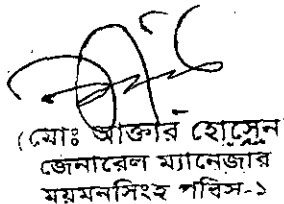 (মোঃ আক্তার হোসেন
জেনারেল ম্যানেজার
ময়মনসিংহ পবিস-১